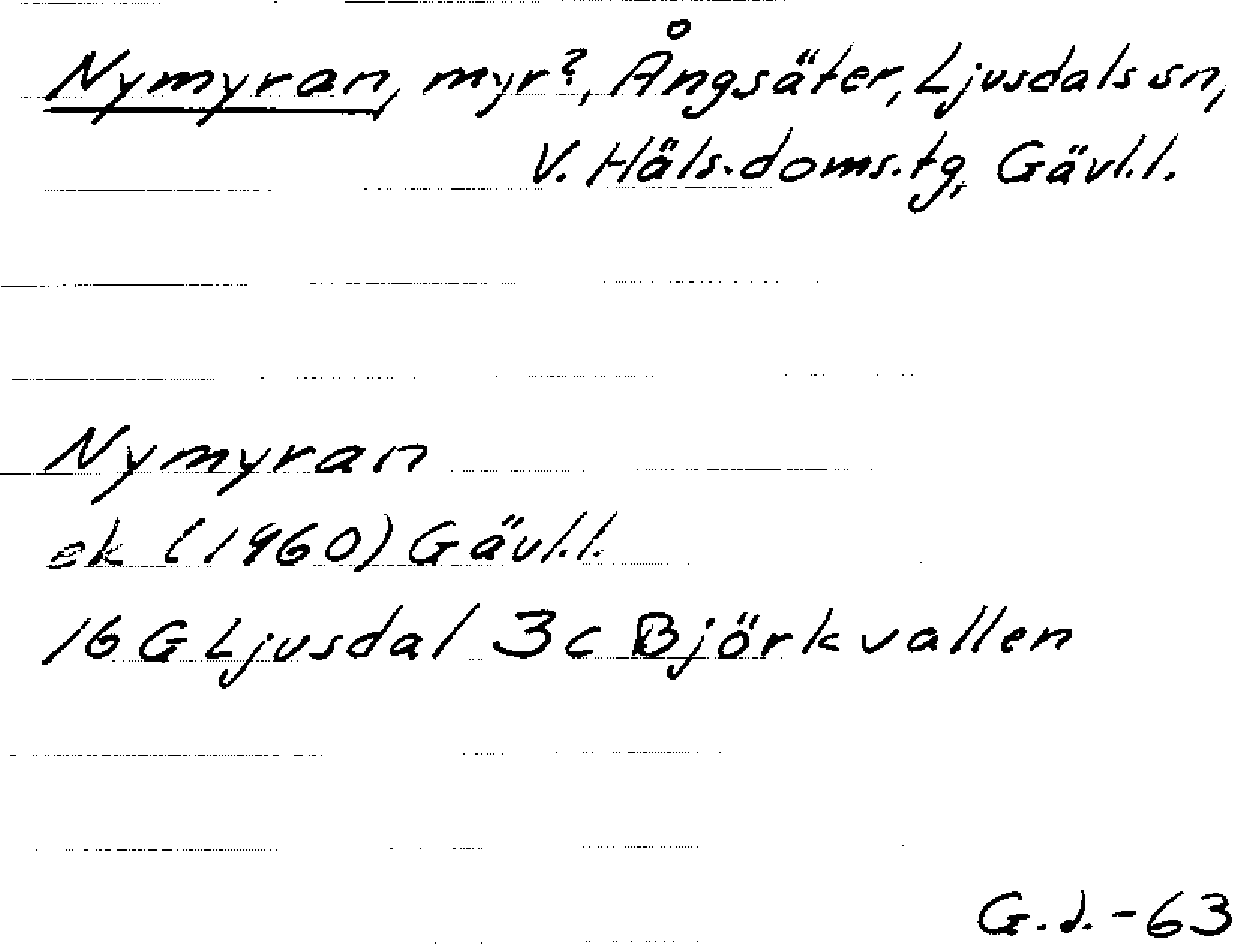 Nymyran, myr?, Ångsäter, Ljusdals sn,
V. Häls. doms. tg, Gävl.l.
Nymyran
ek (1960) Gävl.l.
16 G Ljusdal 3c Björkvallen
G.J.-63